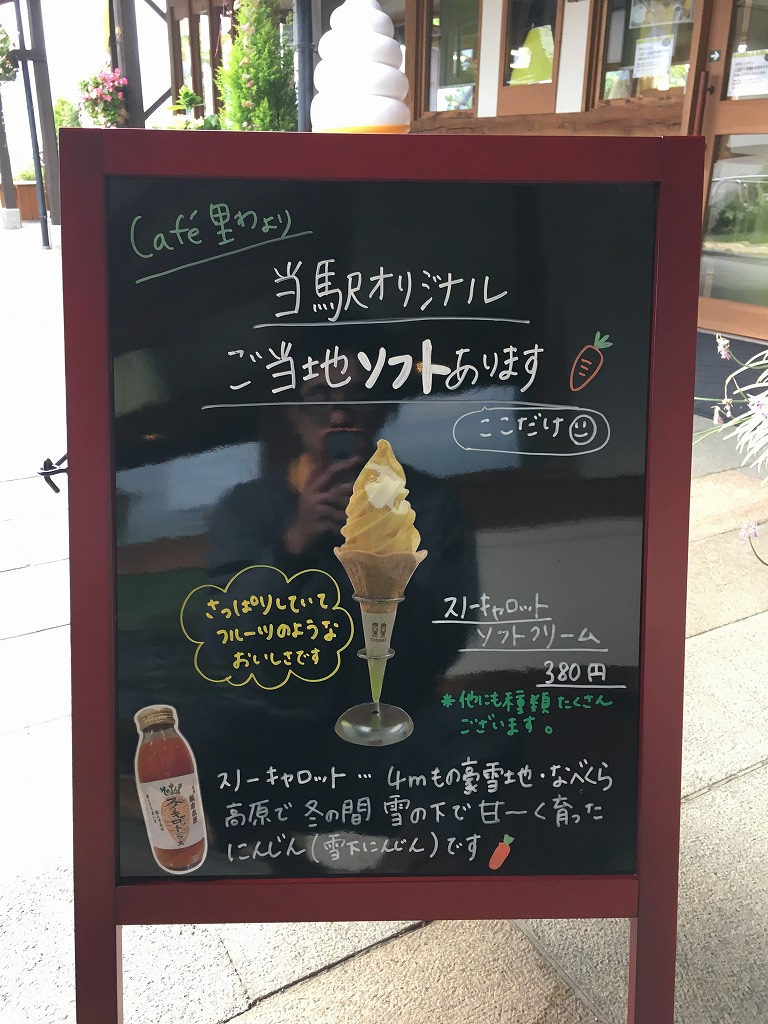 Café里わより
当駅オリジナル
ご当地ソフトあります
ここだけ
さっぱりしていて
フルーツのような
おいしさです
スノーキャロット
ソフトクリーム
380円
*他にも種類たくさん
ございます。
スノーキャロット
スノーキャロット… 4mもの豪雪地・なべくら
高原で冬の間 雪の下で甘ーく育った
にんじん(雪下にんじん)です